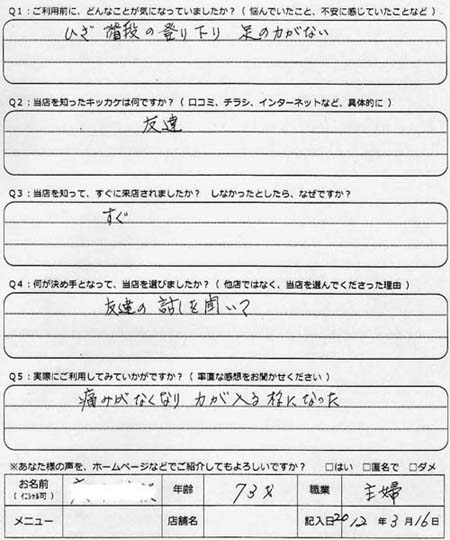 Q1：ご利用前に、どんなことが気になっていましたか？（悩んでいたこと、不安に感じていたことなど）
ひざ 階段の登り下り 足の力がない
Q2：当店を知ったキッカケは何ですか？（口コミ、チラシ、インターネットなど、具体的に）
友達
Q3：当店を知って、すぐに来店されましたか？ しなかったとしたら、なぜですか？
すぐ
Q4：何が決め手となって、当店を選びましたか？（他店ではなく、当店を選んでくださった理由）
友達の話しを聞いて
Q5：実際にご利用してみていかがですか？（率直な感想をお聞かせください）
痛みがなくなり力が入る様になった
※あなた様の声を、ホームページなどでご紹介してもよろしいですか？ □はい □匿名で □ダメ
お名前（イニシャル可） 年齢 73才 職業 主婦
メニュー 店舗名 記入日 2012年3月16日